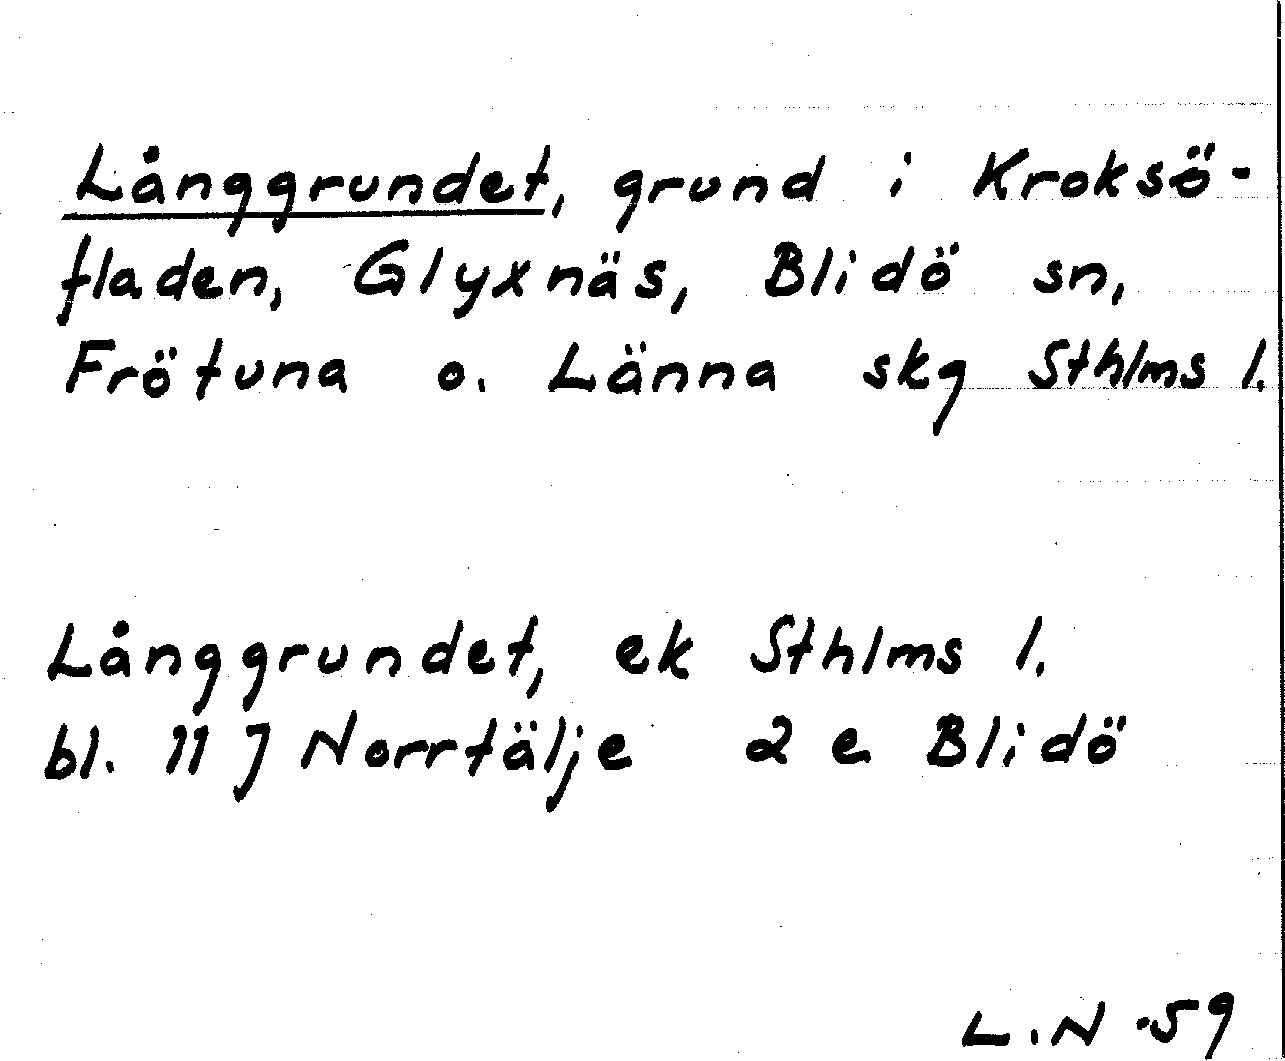 Långgrundet, grund i Kroksö-
fladen, Glyxnäs, Blidö sn,
Frötuna o. Länna skg Sthlms l.
Långgrundet, ek Sthlms l.
bl. 11 J Norrtälje 2 e Blidö
L.N -59